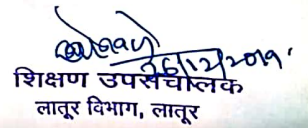 26/12/2019
शिक्षण उपसंचालक
लातूर विभाग, लातूर